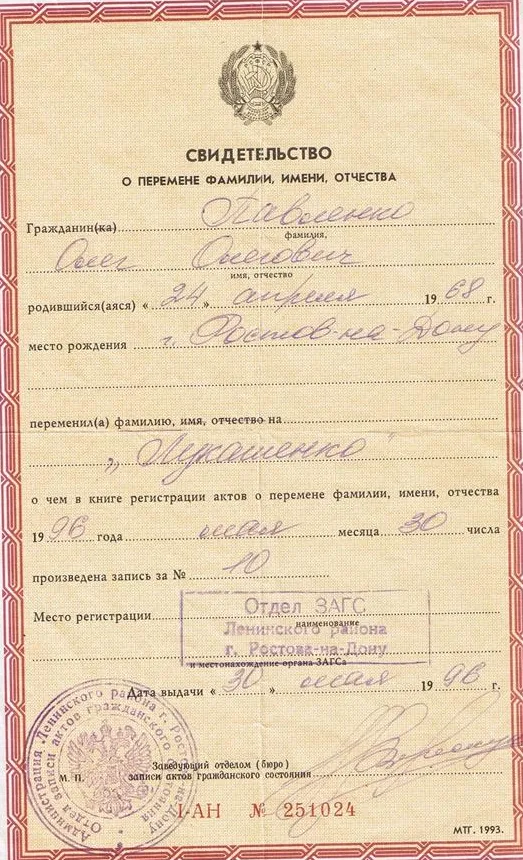 СВИДЕТЕЛЬСТВО
О ПЕРЕМЕНЕ ФАМИЛИИ, ИМЕНИ, ОТЧЕСТВА
Гражданин(ка) Павленко
фамилия,
Олег Олегович
имя, отчество
родившийся(аяся) « 24 » апреля 1968 г.
место рождения г. Ростов-на-Дону
переменил(а) фамилию, имя, отчество на
„Лукашенко"
о чем в книге регистрации актов о перемене фамилии, имени, отчества
1996 года мая месяца 30 числа
произведена запись за № 10
Место регистрации Отдел ЗАГС
наименование
Ленинского района
г. Ростова-на-Дону
и местонахождение органа ЗАГСа
Дата выдачи « 30 » мая 1996 г.
Заведующий отделом (бюро)
М. П. записи актов гражданского состояния
I-АН № 251024
МТГ. 1993.
Администрация Ленинского района г. Ростова-на-Дону
Отдел записи актов гражданского состояния